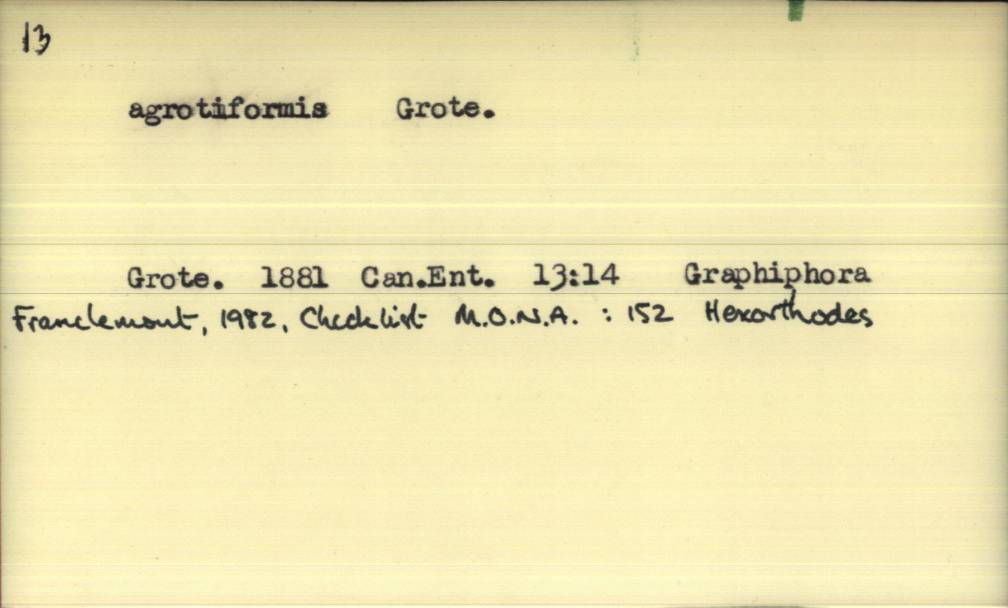 13
agrotiformis Grote.
Grote. 1881 Can.Ent. 13:14 Graphiphora
Franclemont, 1982, Checklist M.O.N.A. : 152 Hexorthodes